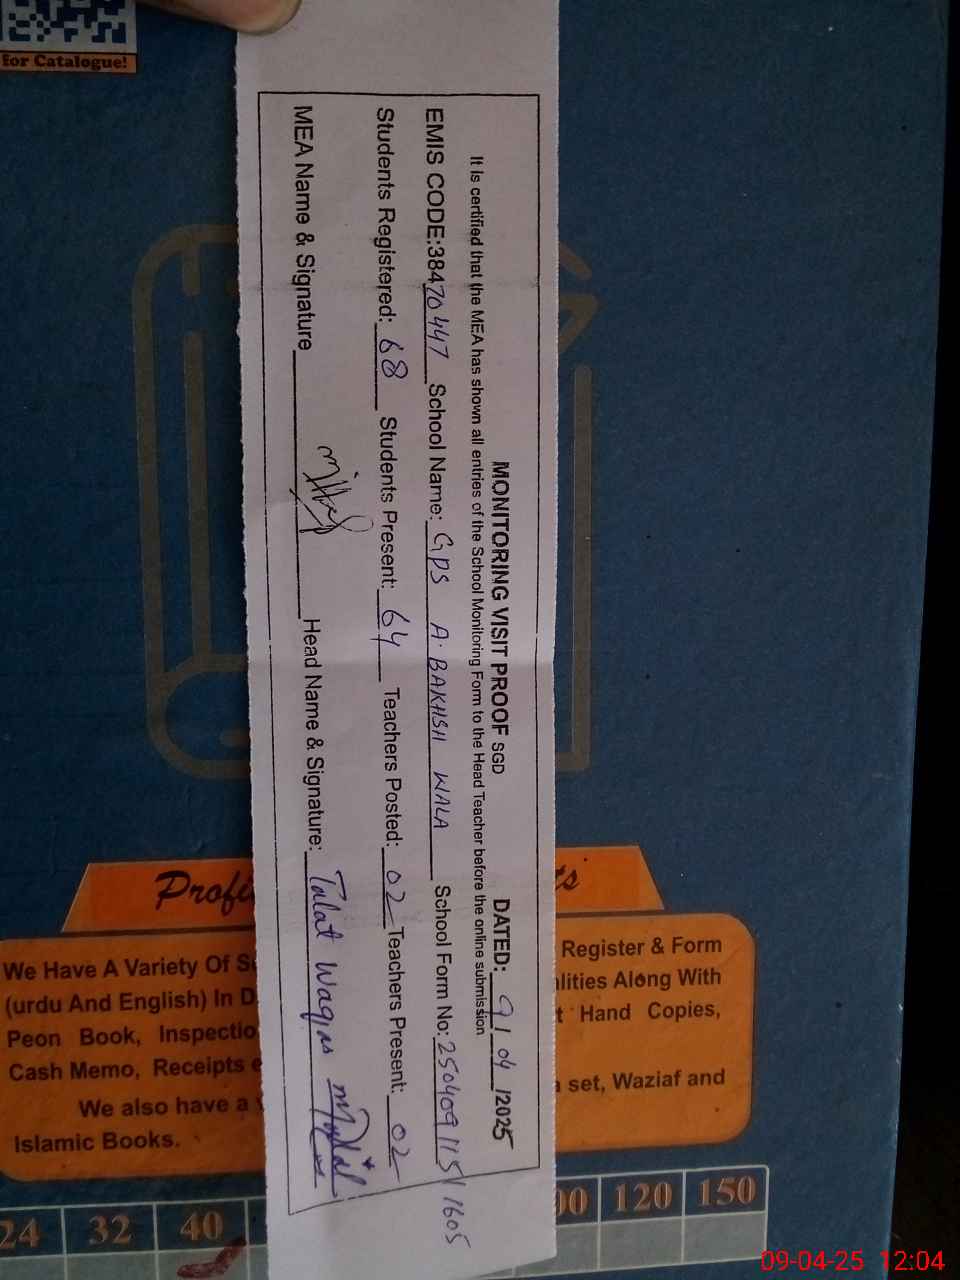 for Catalogue!
MONITORING VISIT PROOF SGD DATED: 9/04/2025
It is certified that the MEA has shown all entries of the School Monitoring Form to the Head Teacher before the online submission
EMIS CODE:38470447 School Name: GPS A. BAKHSH WALA School Form No: 250409115/1605
Students Registered: 68 Students Present: 64 Teachers Posted: 02 Teachers Present: 02
MEA Name & Signature Head Name & Signature: Talat Waqas
We Have A Variety Of
Register & Form
(urdu And English) In
Along With
Peon Book,
Hand Copies,
Cash Memo, Receipts
set, Waziaf and
We also have a
Islamic Books.
24 32 40 120 150
09-04-25 12:04